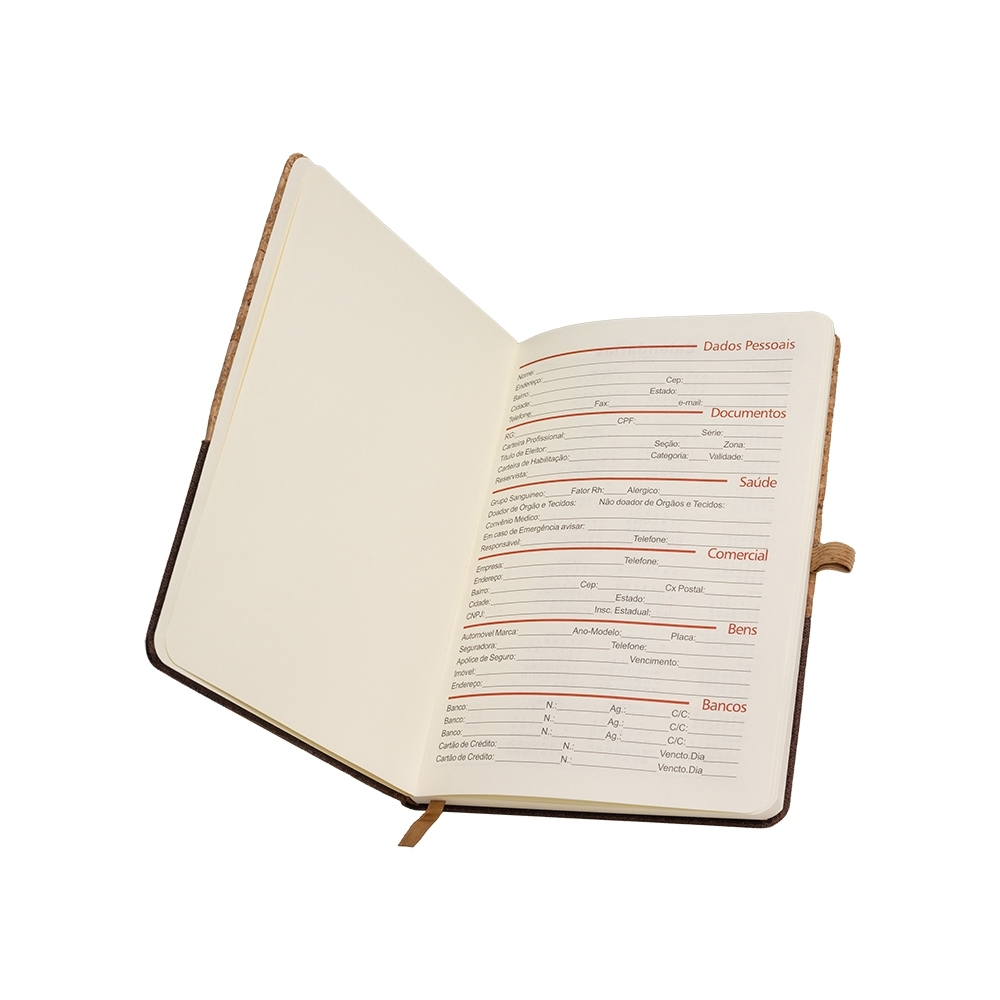 Dados Pessoais
Nome:
Endereço: Cep:
Bairro: Estado:
Cidade: Fax: e-mail:
Telefone
Documentos
RG: CPF:
Carteira Profissional: Série:
Título de Eleitor: Seção: Zona:
Carteira de Habilitação: Categoria: Validade:
Reservista:
Saúde
Grupo Sanguíneo: Fator Rh: Alérgico:
Doador de Orgão e Tecidos: Não doador de Orgãos e Tecidos:
Convênio Médico:
Em caso de Emergência avisar:
Responsável: Telefone:
Comercial
Empresa: Telefone:
Endereço:
Bairro: Cep: Cx Postal:
Cidade: Estado:
CNPJ: Insc. Estadual:
Bens
Automóvel Marca: Ano-Modelo: Placa:
Seguradora: Telefone:
Apólice de Seguro: Vencimento:
Imóvel:
Endereço:
Bancos
Banco: N.: Ag.: C/C:
Banco: N.: Ag.: C/C:
Banco: N.: Ag.: C/C:
Cartão de Crédito: N.: Vencto.Dia
Cartão de Crédito: N.: Vencto.Dia